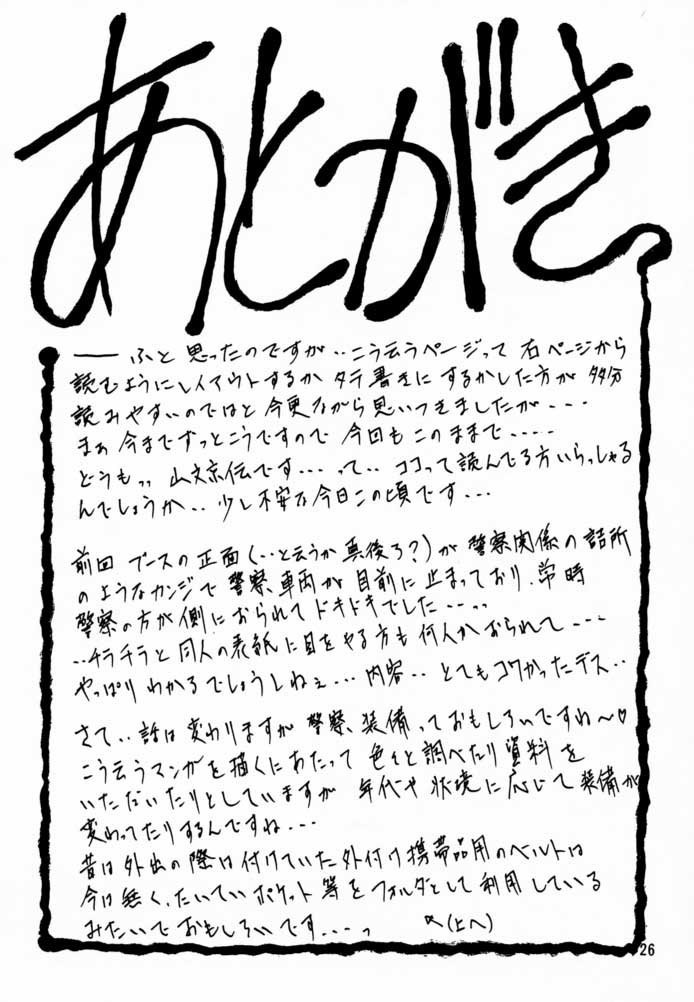 あとがき
── ふと思ったのですが‥こう云うページって右ページから
読むようにレイアウトするかタテ書きにするかした方が多分
読みやすいのではと今更ながら思いつきましたが・・・
まぁ今までずっとこうですので今回もこのままで・・・・・
どうもっっ山文京伝です・・・って‥ココって読んでる方いらっしゃる
んでしょうか‥少し不安な今日この頃です・・・
前回ブースの正面(‥と云うか真後ろ?)が警察関係の詰所
のようなカンジで警察車両が目前に止まっており、常時
警察の方が側におられてドキドキでした・・・っっ
‥チラチラと同人の表紙に目をやる方も何人かおられて・・・
やっぱりわかるでしょうしねぇ・・・内容‥とてもコワかったデス‥
さて‥話は変わりますが警察装備っておもしろいですね〜♡
こう云うマンガを描くにあたって色々と調べたり資料を
いただいたりとしていますが年代や状境に応じて装備が
変わってたりするんですね・・・
昔は外出の際は付けていた外付け携帯品用のベルトは
今は無く、たいていポケット等をフォルダとして利用している
みたいでおもしろいです・・・っ (上へ)
26